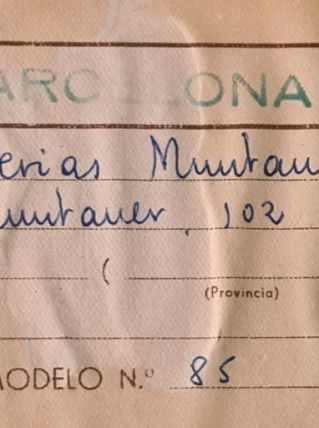 ARCELONA
erias Muntau
untauer, 102
(
(Provincia)
MODELO N.º 85